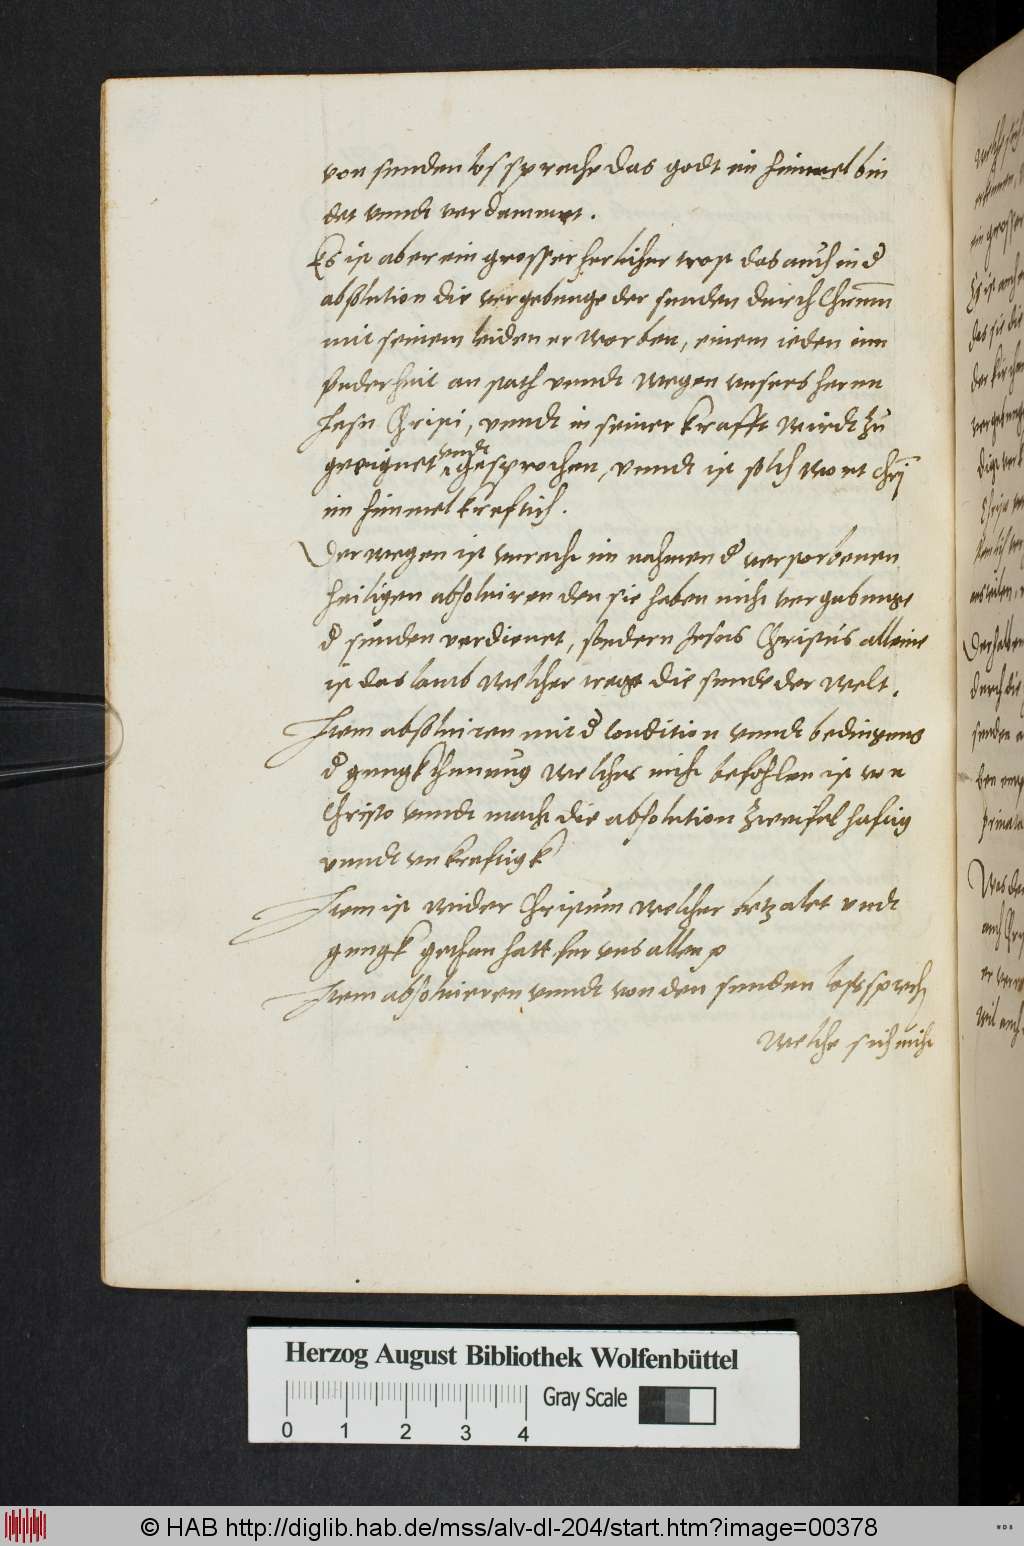 von sunden los spreche das godt im himmel bin
det vnndt verdammet.
Es ist aber ein grosser herlicher trost das auch in d
absolution die vergebunge der sunden durch Christum
mit seinem leiden erworben, einem ieden inn
sonderheit an stath vnndt wegen vnsers herrn
Jesu Christi, vnndt in seiner krafft wirdt zu
geeignet vndt gesprochen, vnndt ist solch wort Chri
im himmel kreftich.
Derwegen ist vnrecht im nahmen d verstorbenen
heiligen absoluiren den sie haben nicht vergebunge
d sunden verdienet, sondern Jesus Christus alleine
ist das lamb welcher tregt die sunde der welt.
Item absoluiren mit d condition vnndt bedingung
d gnugkthuung welches nicht befohlen ist von
Christo vnndt macht die absolution zweifelhaftig
vnndt vnkreftigk
Item ist wider Christum welcher betzalet vndt
gnugk gethan hatt fur vns allen
Item absoluieren vnndt von den sunden losssprech
welche sich nicht
Herzog August Bibliothek Wolfenbüttel
Gray Scale
0 1 2 3 4
© HAB http://diglib.hab.de/mss/alv-dl-204/start.htm?image=00378